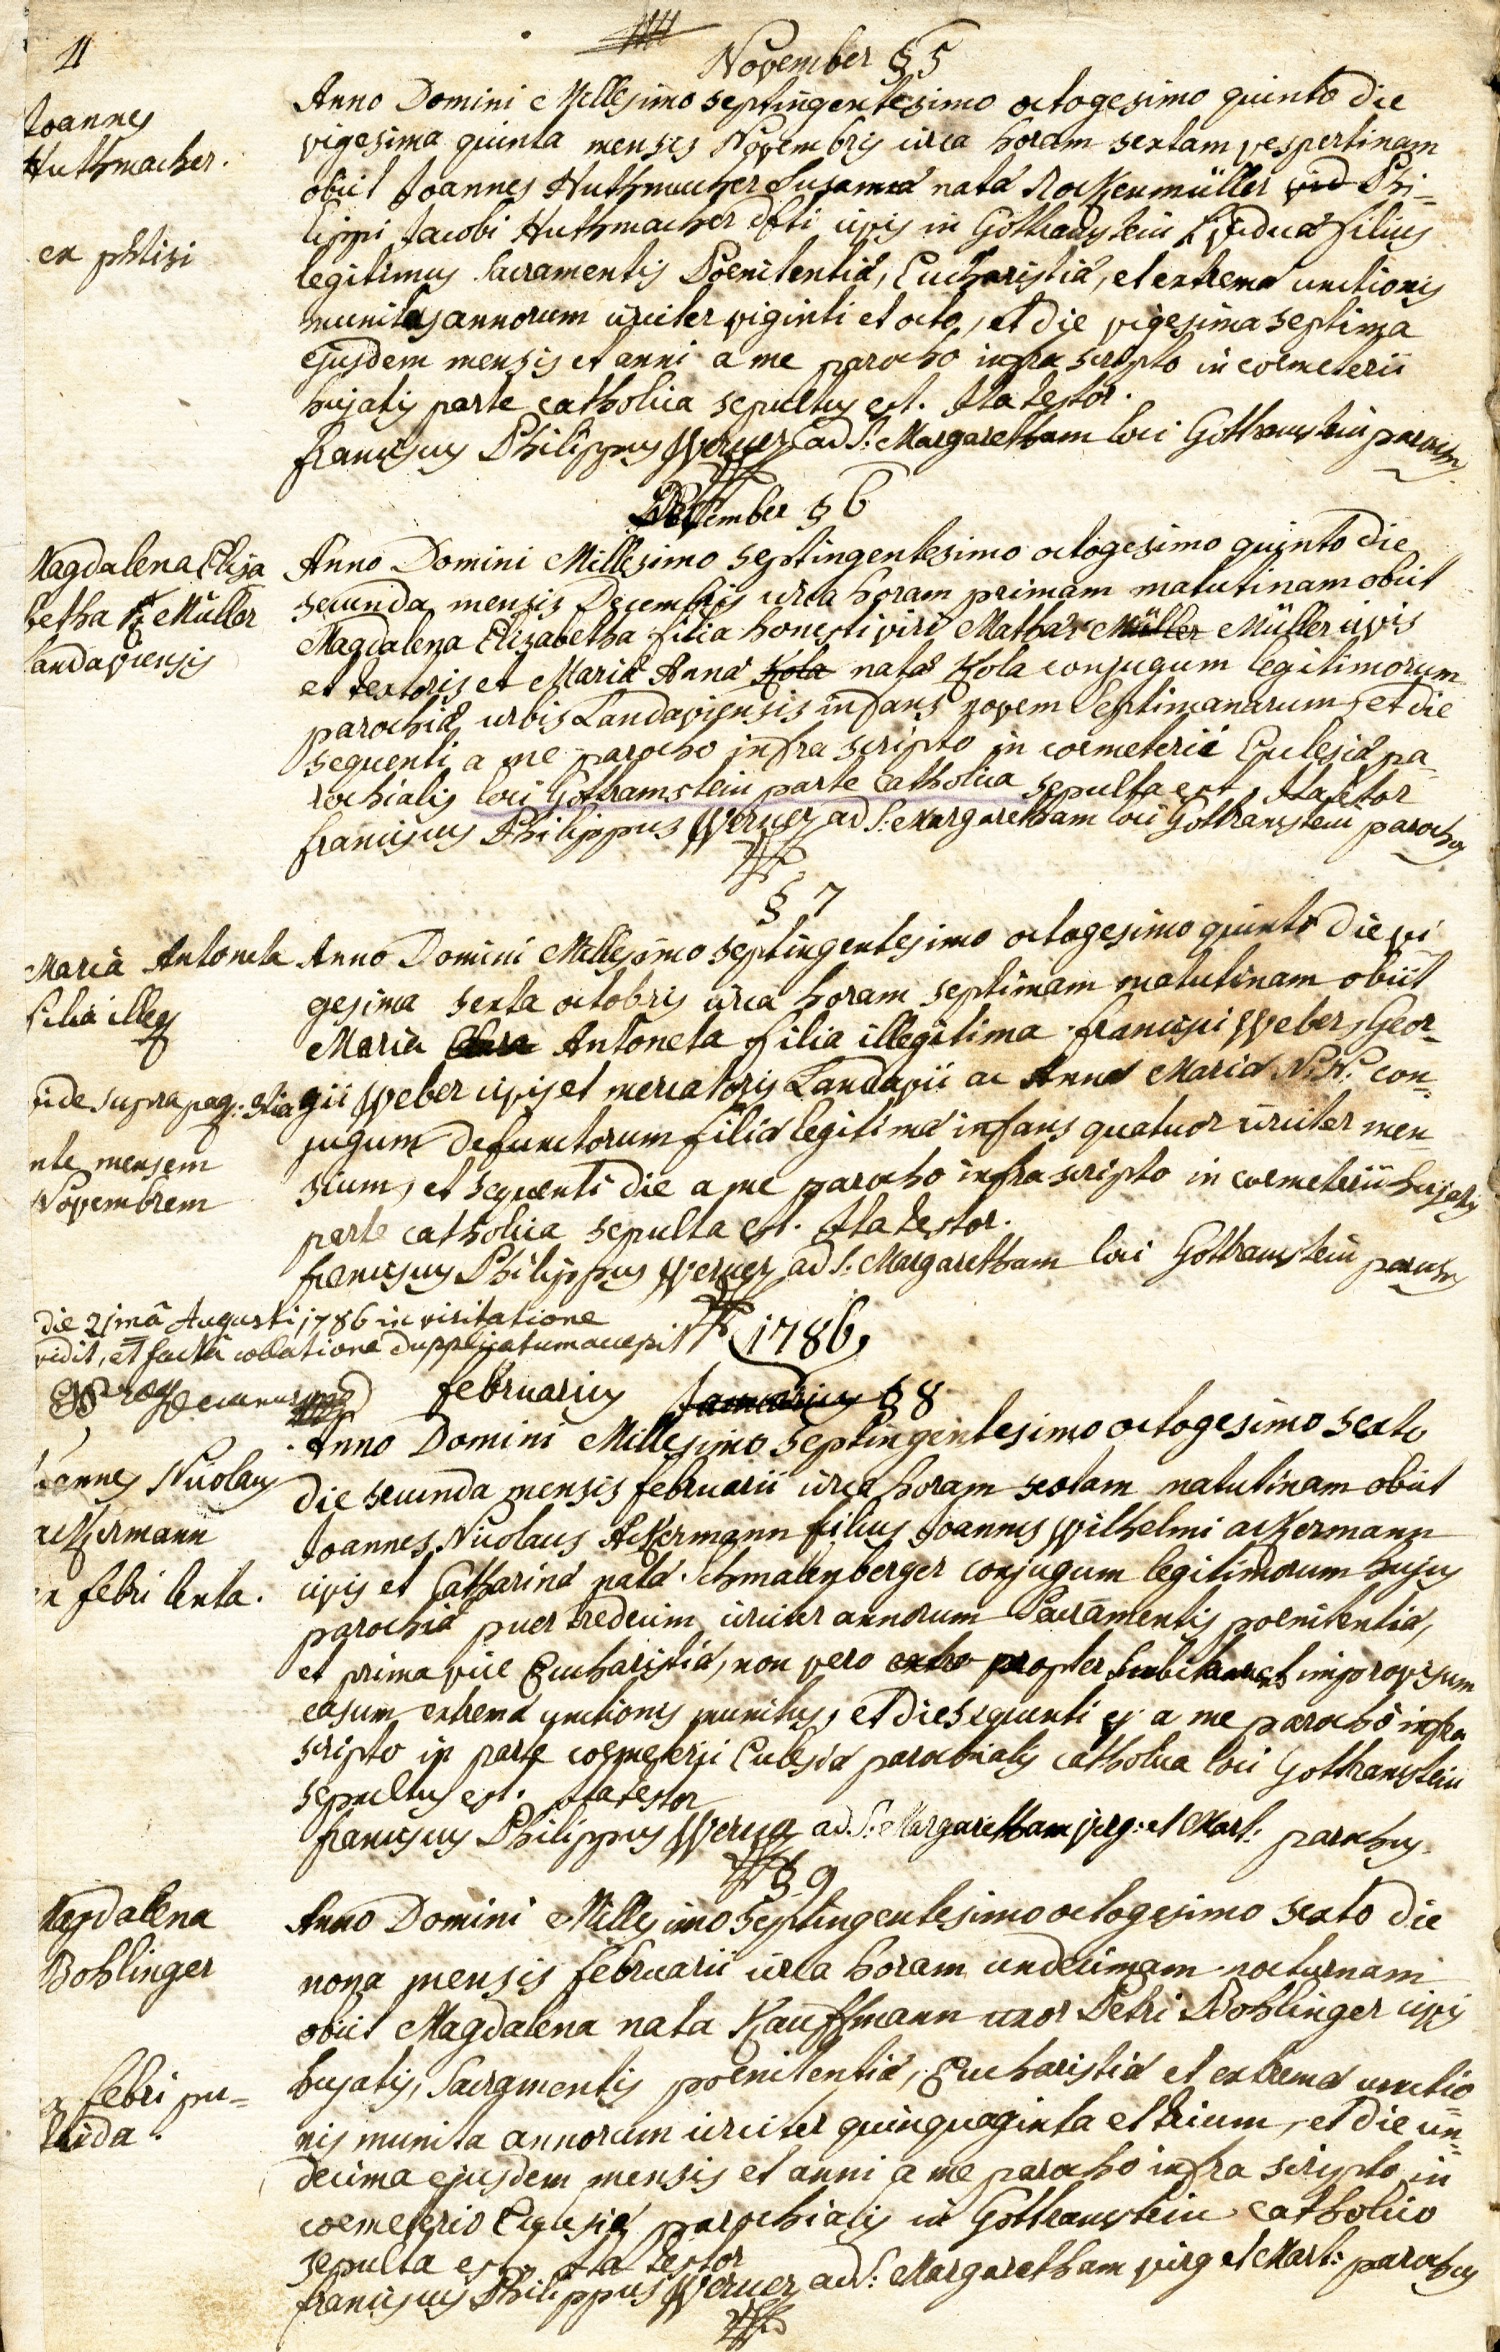 4
November § 5
Joannes
Huthmacher.
ex phtisi
Anno Domini Millesimo septingentesimo octogesimo quinto die
vigesima quinta mensis Novembris circa horam sextam vespertinam
obiit Joannes Huthmacher Susanna nata Rockenmüller vid Phi-
lippi Jacobi Huthmacher dfti civis in Gothramstein Vidua filius
legitimus Sacramentis Poenitentiæ, Eucharistiæ, et extremæ unctionis
munitus annorum circiter viginti et octo, et die vigesima septima
ejusdem mensis et anni a me parocho infra scripto in coemeterii
hujatis parte catholica sepultus est. Ita testor.
Franciscus Philippus Werner ad S: Margaretham loci Gothramstein parochus
December § 6
Magdalena Elisa
betha Müller
Landaviensis
Anno Domini Millesimo septingentesimo octogesimo quinto die
secunda mensis Decembris circa horam primam matutinam obiit
Magdalena Elizabetha filia honesti viri Mathæi Müller Müller civis
et textoris et Mariæ Annæ Kola natæ Kola conjugum legitimorum
parochiæ urbis Landaviensis infans novem septimanarum, et die
sequenti a me parocho infra scripto in coemeterii Ecclesiæ pa-
rochialis loci Gothramstein parte catholica sepulta est, Ita testor
Franciscus Philippus Werner ad S: Margaretham loci Gothramstein parochus
§ 7
Maria Antoneta
filia illeg
vide supra pag:
nte mensem
Novembrem
Anno Domini Millesimo septingentesimo octogesimo quinto die vi-
gesima sexta octobris circa horam septimam matutinam obiit
Maria Antoneta filia illegitima Francisci Weber, Geor-
gii Weber civis et mercatoris Landavii ac Annæ Mariæ N. N. con-
jugum defunctorum filiæ legitimæ infans quatuor circiter men
sium, et sequenti die a me parocho infra scripto in coemeterii hujatis
parte catholica sepulta est. Ita testor.
Franciscus Philippus Werner ad S: Margaretham loci Gothramstein parochus
die 21mâ Augusti 1786 in visitatione
vidit, et factâ collatione dupplicatum accepit
1786,
Februarius Januarius § 8
Joannes Nicolaus
Ackermann
ex febri lenta.
Anno Domini Millesimo septingentesimo octogesimo sexto
die secunda mensis Februarii circa horam sextam matutinam obiit
Joannes Nicolaus Ackermann filius Joannis Wilhelmi Ackermann
civis et Catharinæ natæ Schmalenberger conjugum legitimorum hujus
parochiæ puer tredecim circiter annorum Sacramentis poenitentiæ,
et prima vice Eucharistiæ, non vero extre propter subitaneum et improvisum
casum extremæ unctionis munitus, et die sequenti ej a me parocho infra
scripto in parte coemeterii Ecclesiæ parochialis catholica loci Gothramstein
sepultus est. Ita testor
Franciscus Philippus Werner ad S: Margaretham virg: et Mart: parochus.
§ 9
Magdalena
Bohlinger
ex febri pu-
trida.
Anno Domini Millesimo septingentesimo octogesimo sexto die
nona mensis Februarii circa horam undecimam nocturnam
obiit Magdalena nata Kauffmann uxor Petri Bohlinger civis
hujatis, Sacramentis poenitentiæ, Eucharistiæ et extremæ unctio-
nis munita annorum circiter quinquaginta et trium, et die un-
decima ejusdem mensis et anni a me parocho infra scripto in
coemeterio Ecclesiæ parochialis in Gothramstein catholico
sepulta est, Ita testor
Franciscus Philippus Werner ad S: Margaretham virg et Mart: parochus